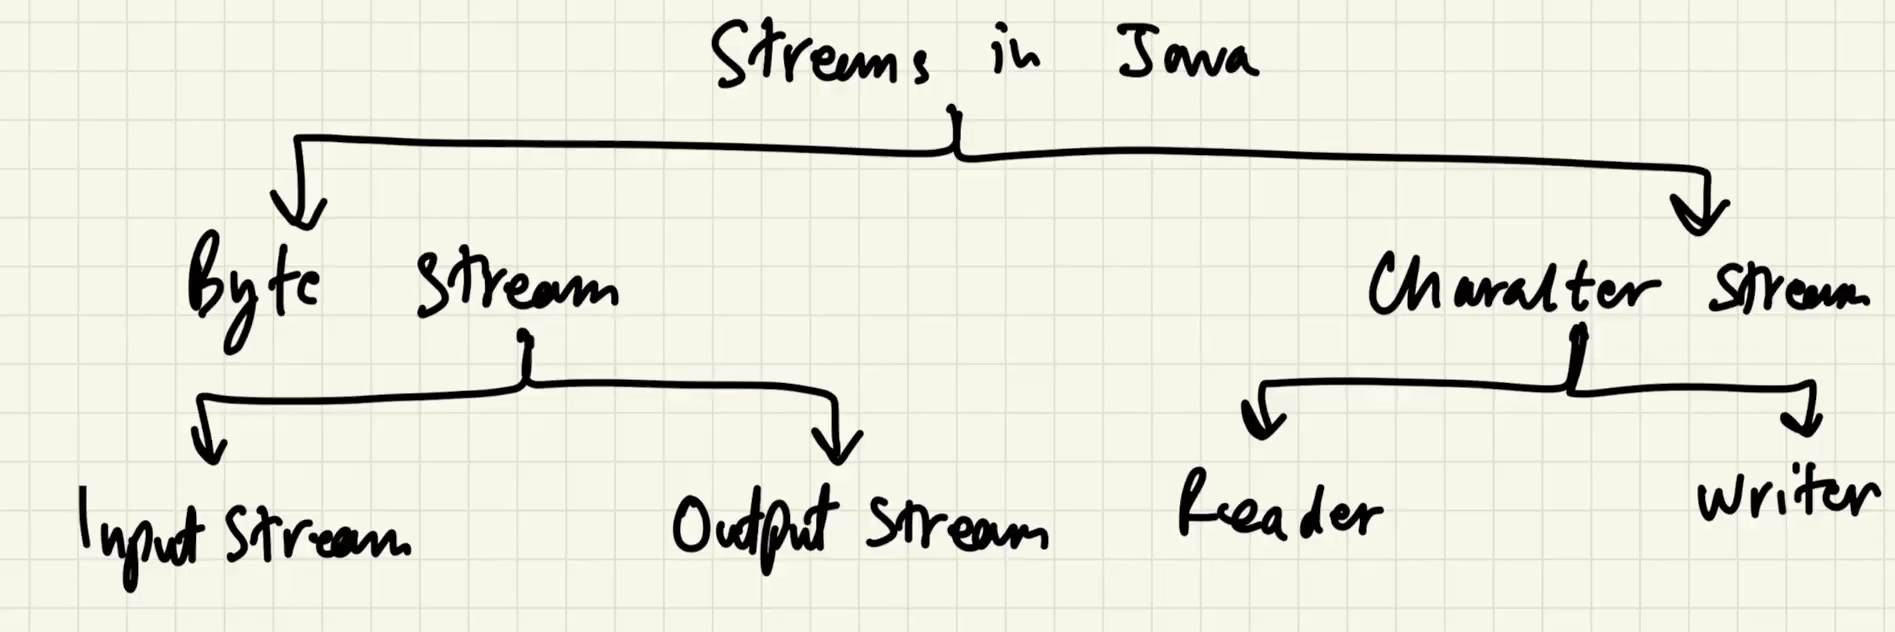 Streams in Java
Byte Stream Character Stream
Input Stream Output Stream Reader Writer